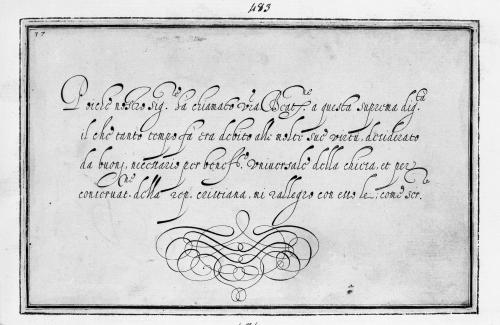 483
37
Poiche nostro sig.re ha chiamato V.ra Beat.ne a questa suprema dig.tà
il che tanto tempo fa era debito alle molte sue virtù, desiderato
da buoni, necessario per benef.o universale della chiesa, et per
conseruat.ne della rep. cristiana, mi rallegro con esso lei, come ser.